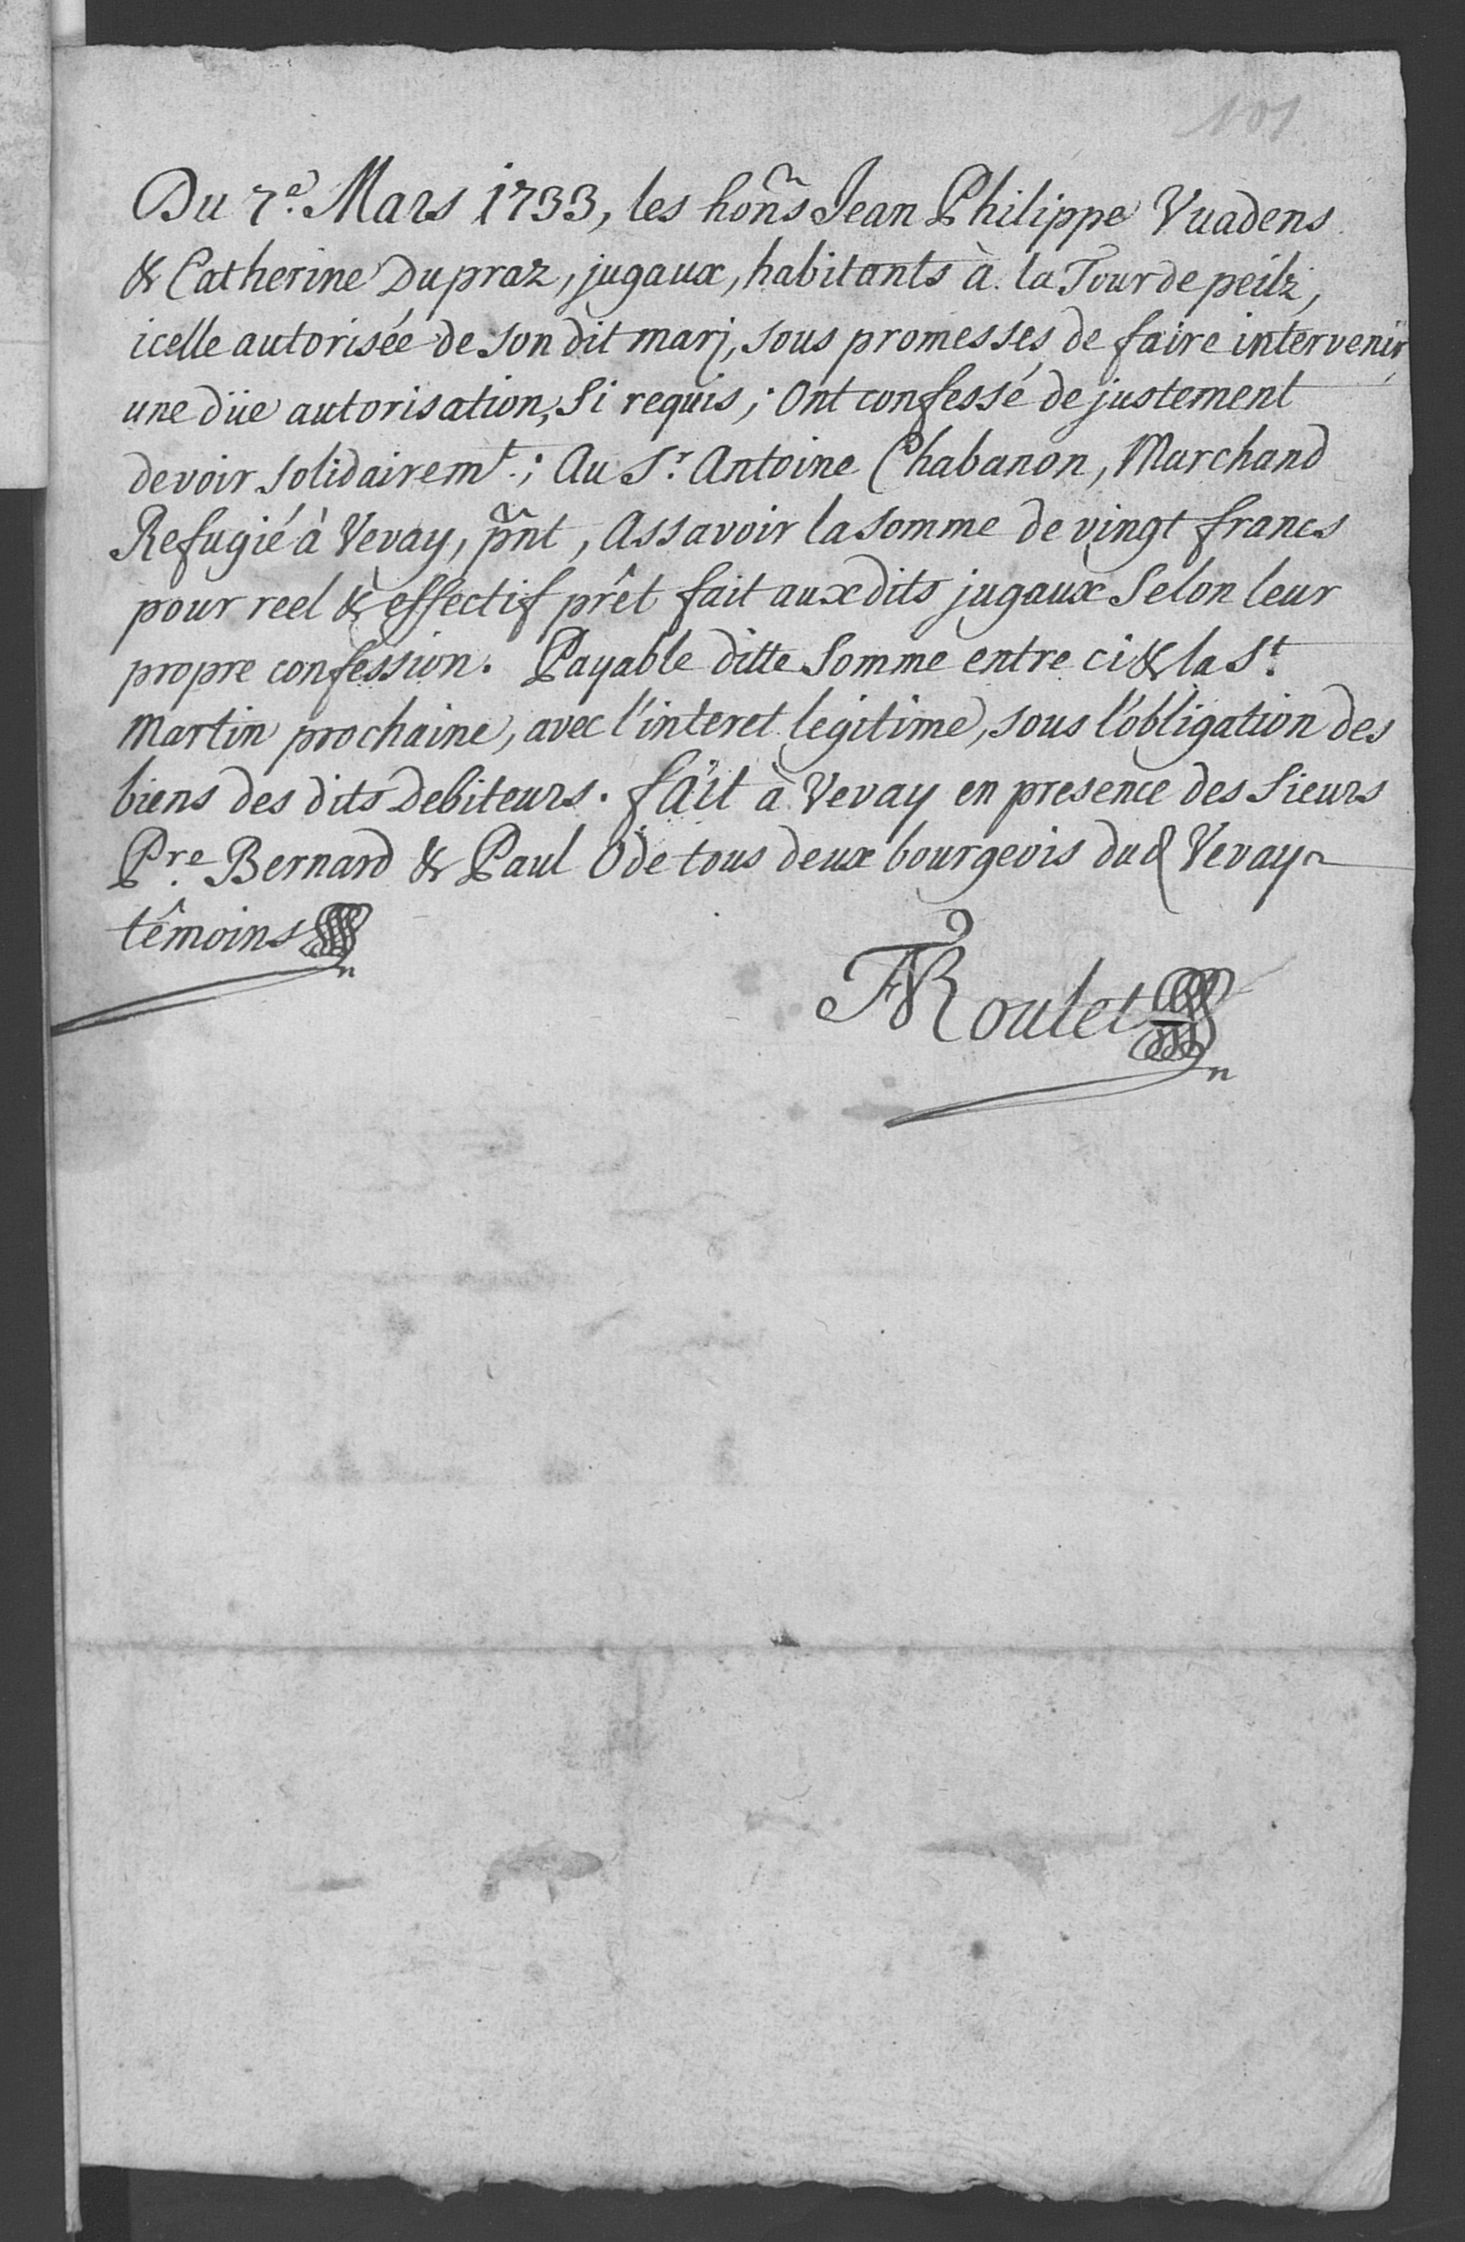 101
Du 7e. Mars 1733, les hon̄s Jean Philippe Vuadens
& Catherine Dupraz, jugaux, habitants à la Tour de peilz,
icelle autorisée de son dit marj, sous promesses de faire intervenir
une düe autorisation, si requis; Ont confessé de justement
devoir solidairemt.; Au Sr. Antoine Chabanon, Marchand
Refugié à Vevay, pn̄t, Assavoir la somme de vingt francs
pour reel & effectif prêt fait auxdits jugaux selon leur
propre confession. Payable ditte somme entre ci & la St.
Martin prochaine, avec l'interet legitime, sous l'obligation des
biens des dits debiteurs. fait à Vevay en presence des Sieurs
Pre. Bernard & Paul Ode tous deux bourgeois dud Vevay
têmoins
Roulet